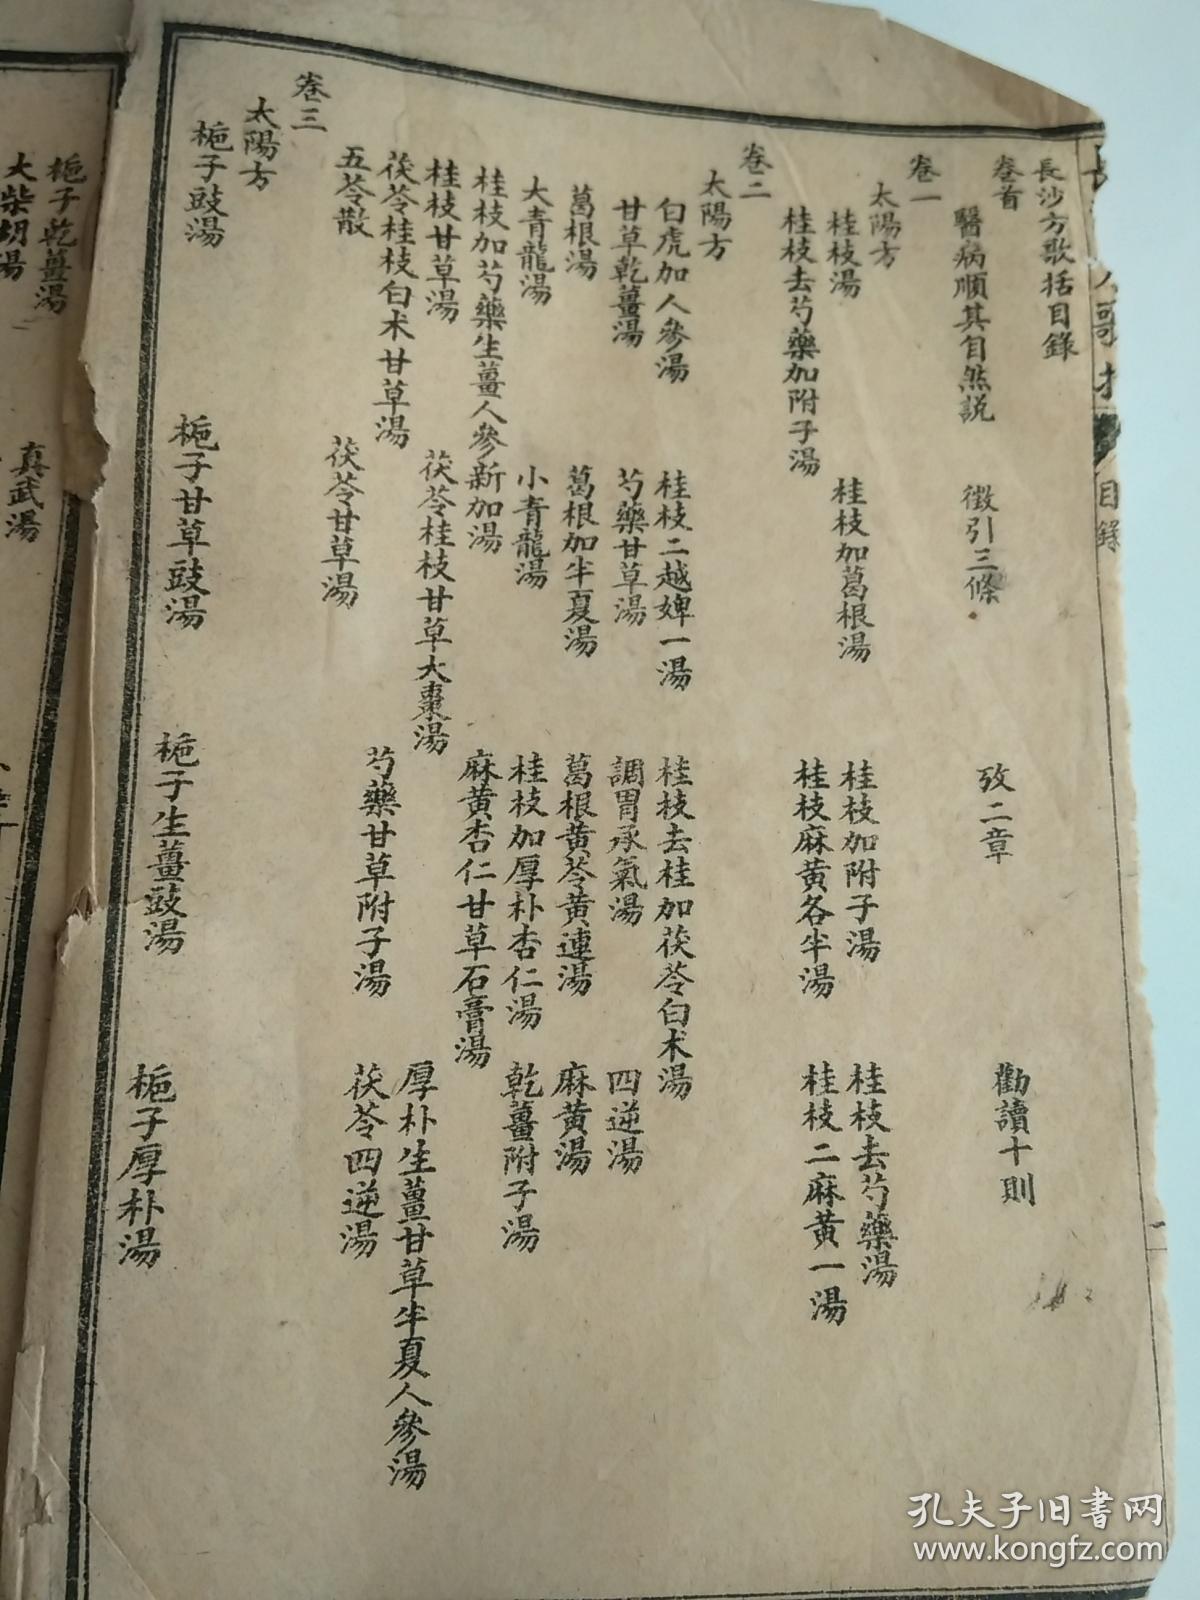 長沙方歌括目錄
卷首
醫病順其自然説 徵引三條 攷二章 勸讀十則
卷一
太陽方
桂枝湯 桂枝加葛根湯 桂枝加附子湯 桂枝去芍藥湯
桂枝去芍藥加附子湯 桂枝麻黃各半湯 桂枝二麻黃一湯
卷二
太陽方
白虎加人參湯 桂枝二越婢一湯 桂枝去桂加茯苓白术湯
甘草乾薑湯 芍藥甘草湯 調胃承氣湯 四逆湯
葛根湯 葛根加半夏湯 葛根黃芩黃連湯 麻黃湯
大青龍湯 小青龍湯 桂枝加厚朴杏仁湯 乾薑附子湯
桂枝加芍藥生薑人參新加湯 麻黃杏仁甘草石膏湯
桂枝甘草湯 茯苓桂枝甘草大棗湯 厚朴生薑甘草半夏人參湯
茯苓桂枝白术甘草湯 芍藥甘草附子湯 茯苓四逆湯
五苓散 茯苓甘草湯
卷三
太陽方
梔子豉湯 梔子甘草豉湯 梔子生薑豉湯 梔子厚朴湯
梔子乾薑湯 真武湯
大柴胡湯
歌 目錄
孔夫子旧书网
www.kongfz.com